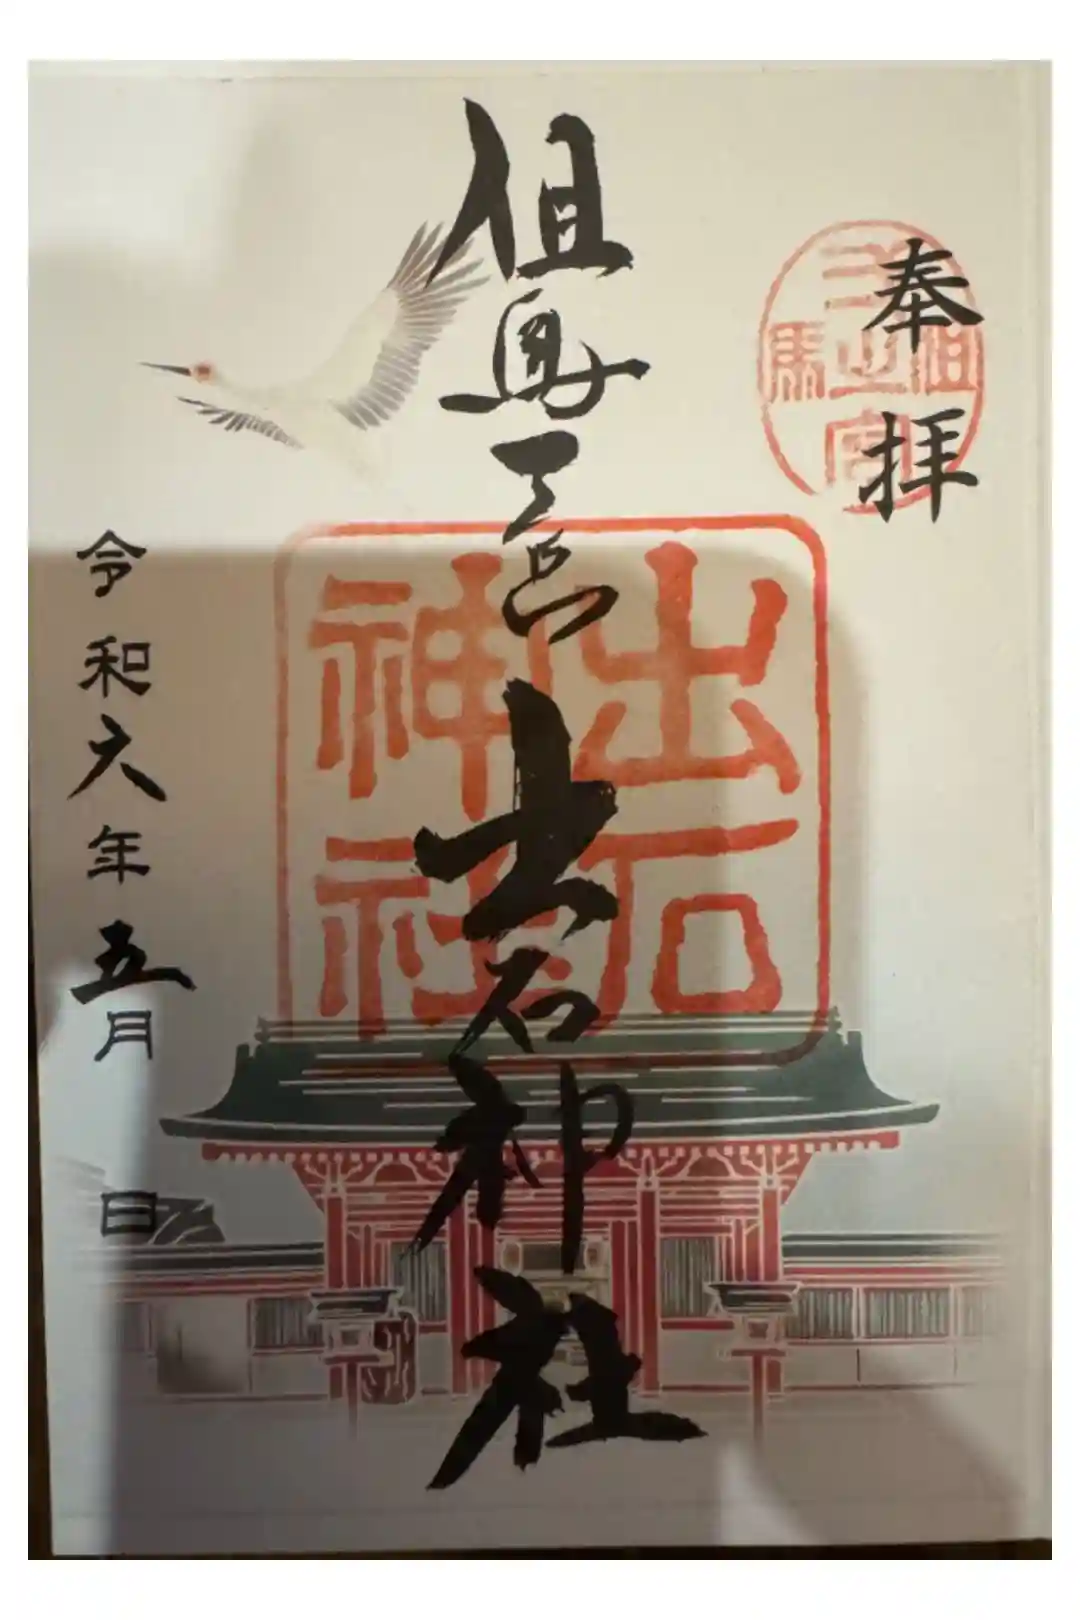 奉拝
但馬一之宮
但馬一宮 出石神社
出石神社
令和六年五月 日